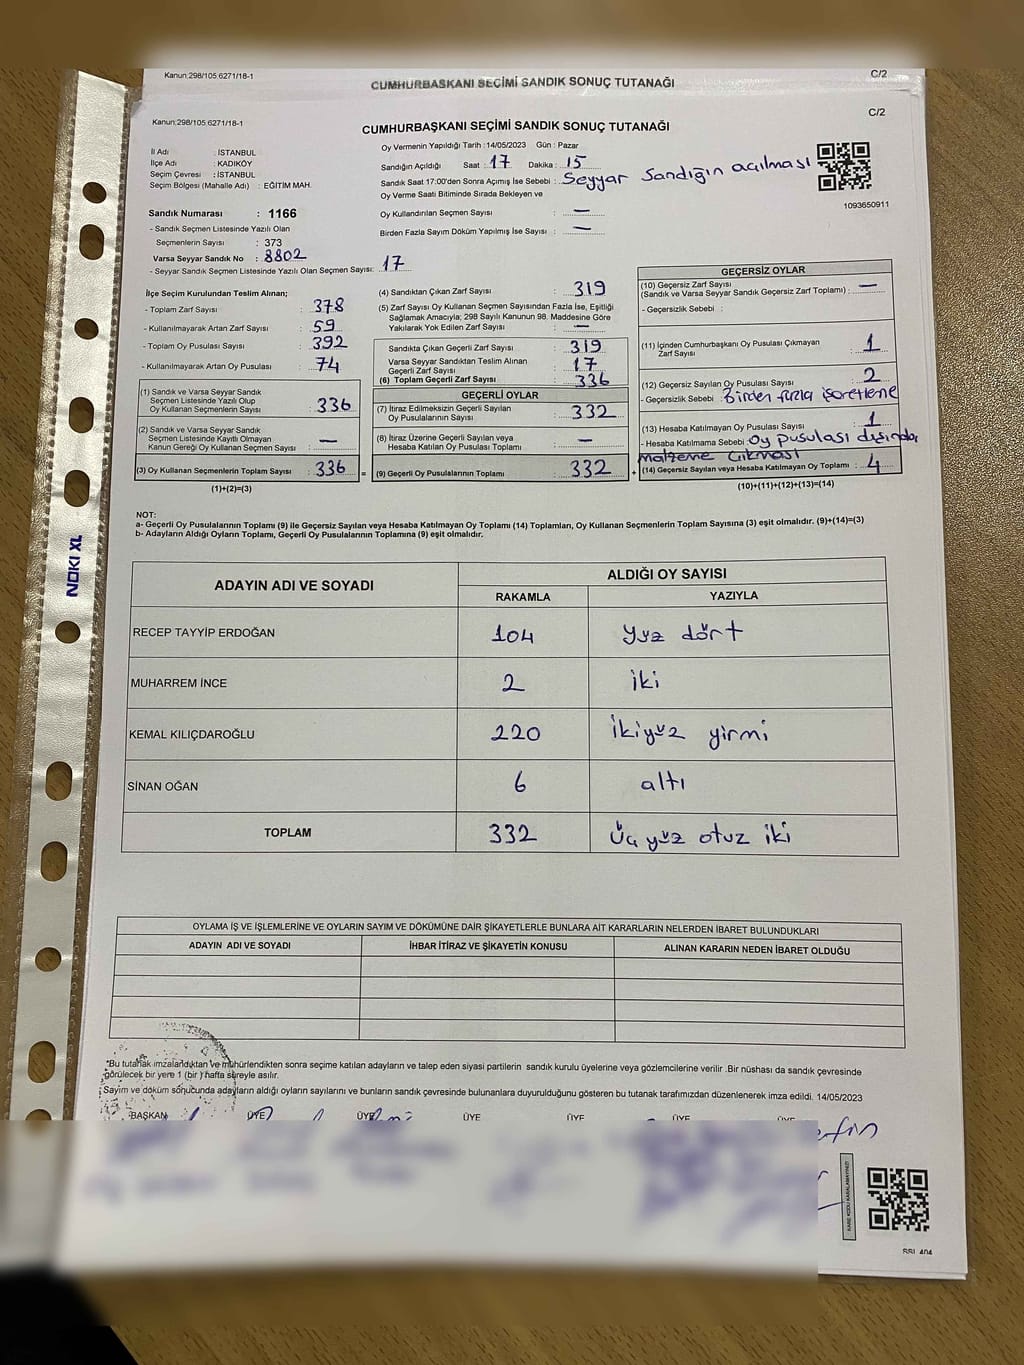 Kanun:298/105 6271/18-1
CUMHURBAŞKANI SEÇİMİ SANDIK SONUÇ TUTANAĞI
C/2
Kanun:298/105 6271/18-1
CUMHURBAŞKANI SEÇİMİ SANDIK SONUÇ TUTANAĞI
C/2
İl Adı : İSTANBUL
İlçe Adı : KADIKÖY
Seçim Çevresi : İSTANBUL
Seçim Bölgesi (Mahalle Adı) : EĞİTİM MAH.
Oy Vermenin Yapıldığı Tarih : 14/05/2023 Gün : Pazar
Sandığın Açıldığı Saat : 17 Dakika : 15
Sandık Saat 17:00'den Sonra Açımış İse Sebebi : Seyyar Sandığın açılması
Oy Verme Saati Bitiminde Sırada Bekleyen ve
Oy Kullandırılan Seçmen Sayısı : —
Birden Fazla Sayım Döküm Yapılmış İse Sayısı : —
1093650911
Sandık Numarası : 1166
- Sandık Seçmen Listesinde Yazılı Olan
Seçmenlerin Sayısı : 373
Varsa Seyyar Sandık No : 8802
- Seyyar Sandık Seçmen Listesinde Yazılı Olan Seçmen Sayısı: 17
İlçe Seçim Kurulundan Teslim Alınan;
- Toplam Zarf Sayısı : 378
- Kullanılmayarak Artan Zarf Sayısı : 59
- Toplam Oy Pusulası Sayısı : 392
- Kullanılmayarak Artan Oy Pusulası : 74
(1) Sandık ve Varsa Seyyar Sandık
Seçmen Listesinde Yazılı Olup
Oy Kullanan Seçmenlerin Sayısı : 336
(2) Sandık ve Varsa Seyyar Sandık
Seçmen Listesinde Kayıtlı Olmayan
Kanun Gereği Oy Kullanan Seçmen Sayısı : —
(3) Oy Kullanan Seçmenlerin Toplam Sayısı : 336 =
(1)+(2)=(3)
(4) Sandıktan Çıkan Zarf Sayısı : 319
(5) Zarf Sayısı Oy Kullanan Seçmen Sayısından Fazla İse, Eşitliği
Sağlamak Amacıyla; 298 Sayılı Kanunun 98. Maddesine Göre
Yakılarak Yok Edilen Zarf Sayısı : —
Sandıkta Çıkan Geçerli Zarf Sayısı : 319
Varsa Seyyar Sandıktan Teslim Alınan
Geçerli Zarf Sayısı : 17
(6) Toplam Geçerli Zarf Sayısı : 336
GEÇERLİ OYLAR
(7) İtiraz Edilmeksizin Geçerli Sayılan
Oy Pusulalarının Sayısı : 332
(8) İtiraz Üzerine Geçerli Sayılan veya
Hesaba Katılan Oy Pusulası Sayısı : —
(9) Geçerli Oy Pusulalarının Toplamı : 332 +
GEÇERSİZ OYLAR
(10) Geçersiz Zarf Sayısı
(Sandık ve Varsa Seyyar Sandık Geçersiz Zarf Toplamı) : —
- Geçersizlik Sebebi :
(11) İçinden Cumhurbaşkanı Oy Pusulası Çıkmayan
Zarf Sayısı : 1
(12) Geçersiz Sayılan Oy Pusulası Sayısı : 2
- Geçersizlik Sebebi : Birden fazla işaretleme
(13) Hesaba Katılmayan Oy Pusulası Sayısı : 1
- Hesaba Katılmama Sebebi : Oy pusulası dışında
malzeme çıkması
(14) Geçersiz Sayılan veya Hesaba Katılmayan Oy Toplamı : 4
(10)+(11)+(12)+(13)=(14)
NOT:
a- Geçerli Oy Pusulalarının Toplamı (9) ile Geçersiz Sayılan veya Hesaba Katılmayan Oy Toplamı (14) Toplamları, Oy Kullanan Seçmenlerin Toplam Sayısına (3) eşit olmalıdır. (9)+(14)=(3)
b- Adayların Aldığı Oyların Toplamı, Geçerli Oy Pusulalarının Toplamına (9) eşit olmalıdır.
ADAYIN ADI VE SOYADI
ALDIĞI OY SAYISI
RAKAMLA YAZIYLA
RECEP TAYYİP ERDOĞAN 104 yüz dört
MUHARREM İNCE 2 iki
KEMAL KILIÇDAROĞLU 220 ikiyüz yirmi
SİNAN OĞAN 6 altı
TOPLAM 332 Üç yüz otuz iki
OYLAMA İŞ VE İŞLEMLERİNE VE OYLARIN SAYIM VE DÖKÜMÜNE DAİR ŞİKAYETLERLE BUNLARA AİT KARARLARIN NELERDEN İBARET BULUNDUKLARI
ADAYIN ADI VE SOYADI İHBAR İTİRAZ VE ŞİKAYETİN KONUSU ALINAN KARARIN NEDEN İBARET OLDUĞU
*Bu tutanak imzalandıktan ve mühürlendikten sonra seçime katılan adayların ve talep eden siyasi partilerin sandık kurulu üyelerine veya gözlemcilerine verilir .Bir nüshası da sandık çevresinde
görülecek bir yere 1 (bir ) hafta süreyle asılır.
Sayım ve döküm sonucunda adayların aldığı oyların sayılarını ve bunların sandık çevresinde bulunanlara duyurulduğunu gösteren bu tutanak tarafımızdan düzenlenerek imza edildi. 14/05/2023
BAŞKAN ÜYE ÜYE ÜYE ÜYE ÜYE ÜYE
NOKI XL